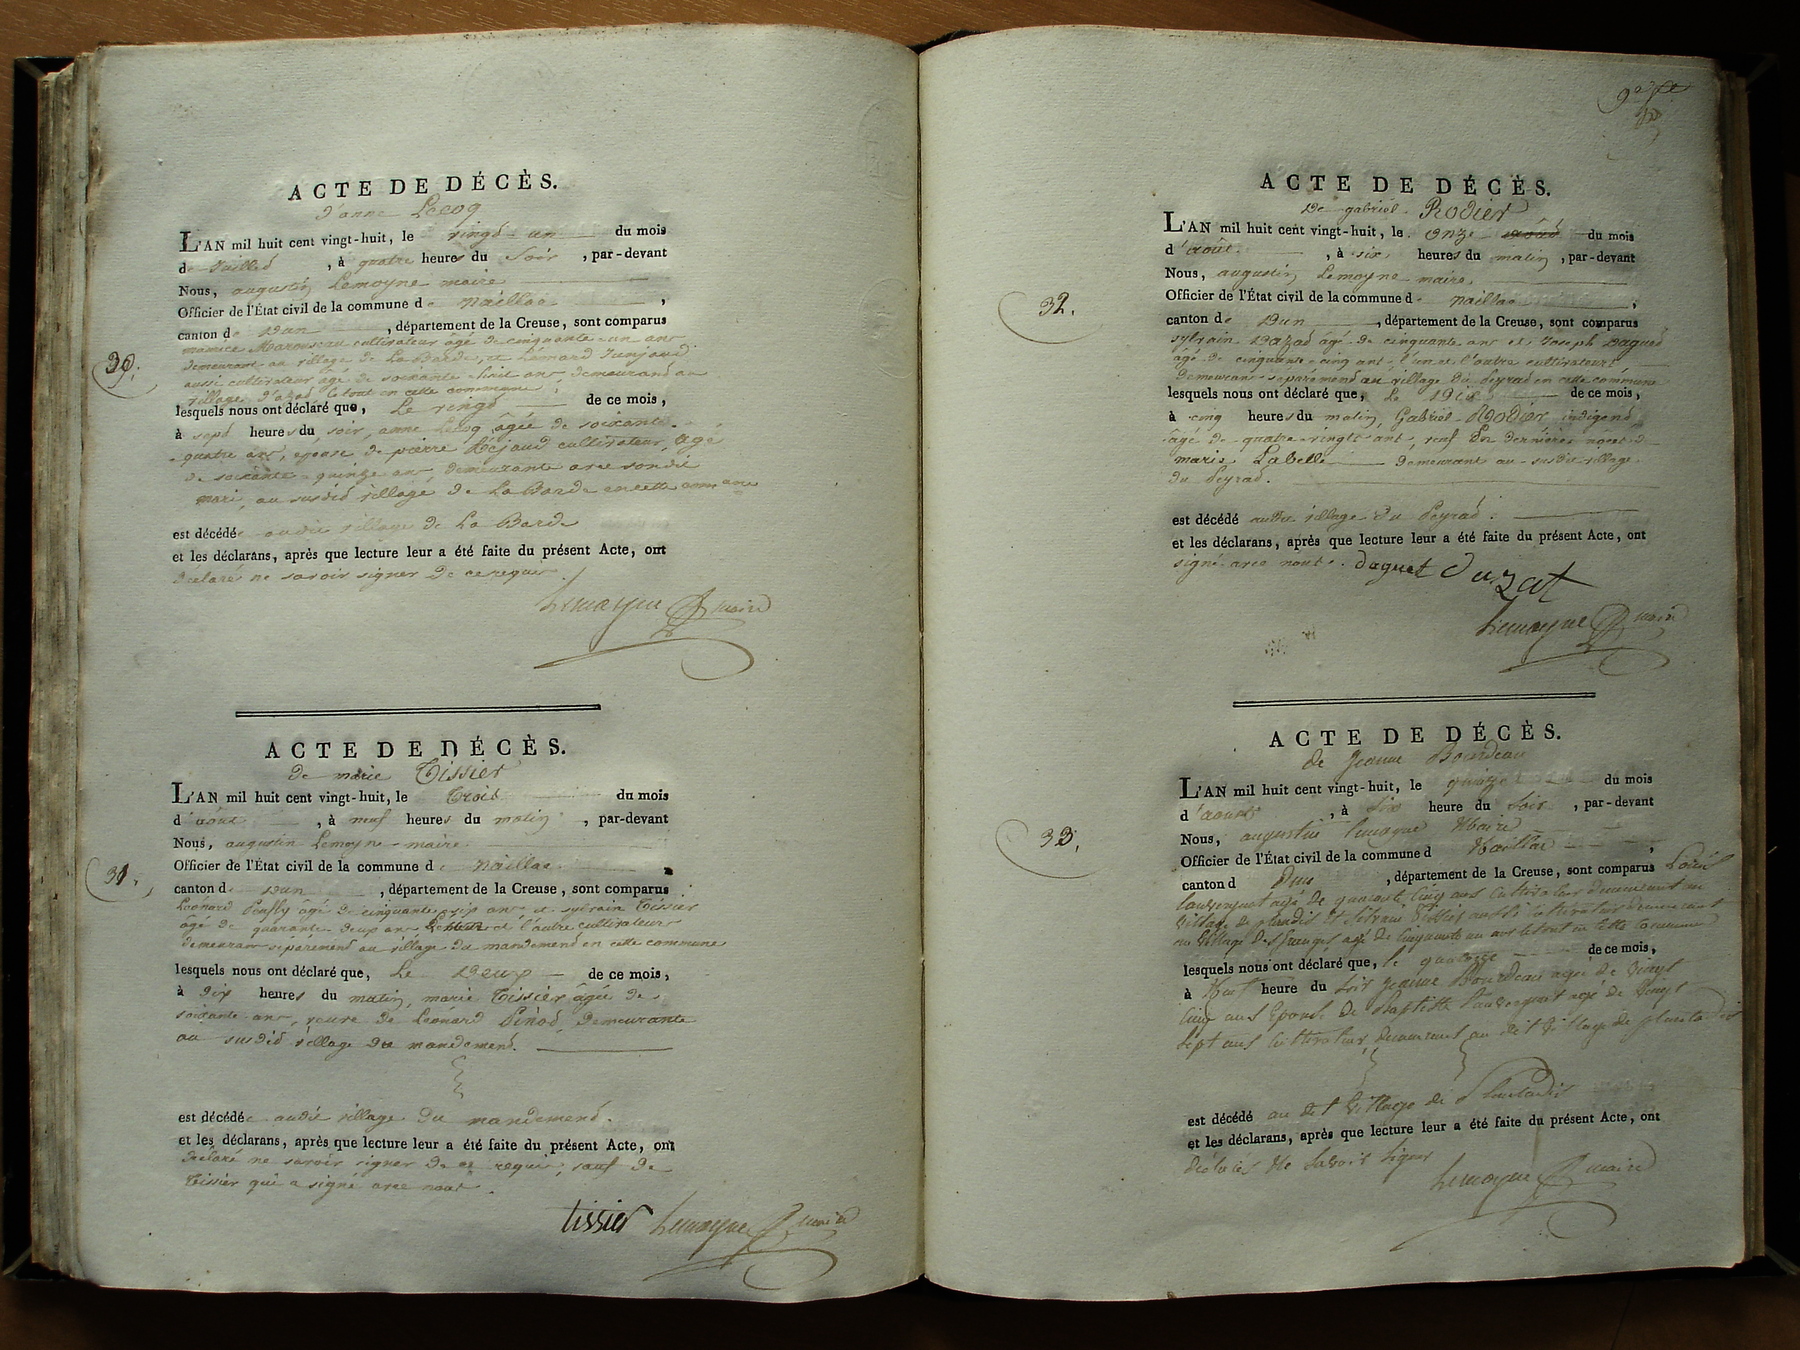 ACTE DE DÉCÈS.
d'anne Lecoq
L'AN mil huit cent vingt-huit, le vingt un du mois
de Juillet, à quatre heures du Soir, par-devant
Nous, augustin Lemoyne maire
Officier de l'État civil de la commune de naillac,
canton de Dun, département de la Creuse, sont comparus
maurice cultivateur âgé de cinquante-un ans
demeurant au village de La Barde, et Léonard
aussi cultivateur âgé de soixante huit ans, demeurand au
village le tout en cette commune
lesquels nous ont déclaré que, Le vingt de ce mois,
à sept heures du soir, anne Lecoq âgée de soixante-
quatre ans, epouse de pierre cultivateur, âgé
de soixante-quinze ans demeurante avec son dit
mari, au susdit village de La Barde en cette commune
est décédée audit village de La Barde
et les déclarans, après que lecture leur a été faite du présent Acte, ont
declarés ne savoir signer de ce requis.
Lemoyne maire
30.
ACTE DE DÉCÈS.
de marie Tissier
L'AN mil huit cent vingt-huit, le Trois du mois
d'aout, à neuf heures du matin, par-devant
Nous, augustin Lemoyne maire
Officier de l'État civil de la commune de naillac
canton de Dun, département de la Creuse, sont comparus
Léonard âgé de cinquante six ans et sylvain Tissier
âgé de quarante-deux ans et l'autre cultivateurs
demeurans séparément au village du mandement en cette commune
lesquels nous ont déclaré que, Le Deux de ce mois,
à Dix heures du matin, marie Tissier âgée de
soixante ans, veuve de Léonard Pénot, Demeurante
au susdit village du mandement.
est décédée audit village du mandement.
et les déclarans, après que lecture leur a été faite du présent Acte, ont
déclaré ne savoir signer de ce requis, sauf de
Tissier qui a signé avec nous.
tissier Lemoyne maire
31.
ACTE DE DÉCÈS.
De gabriel Rodier
L'AN mil huit cent vingt-huit, le onze du mois
d'août, à six heures du matin, par-devant
Nous, augustin Lemoyne maire.
Officier de l'État civil de la commune de naillac,
canton de Dun, département de la Creuse, sont comparus
sylvain Dazat âgé de cinquante ans et Joseph Daguet
âgé de cinquante-cinq ans, l'un et l'autre cultivateurs
Demeurans séparément au village du Peyrat en cette commune
lesquels nous ont déclaré que, Le Dix de ce mois,
à cinq heures du matin, Gabriel Rodier, indigent
âgé de quatre-vingts ans, veuf en dernières noces de
marie Labelle demeurant au susdit village
du Peyrat.
est décédé audit village du Peyrat.
et les déclarans, après que lecture leur a été faite du présent Acte, ont
signé avec nous. daguet Duzat
Lemoyne maire
32.
ACTE DE DÉCÈS.
de Jeanne Bourdeau
L'AN mil huit cent vingt-huit, le quinze du mois
d'aoust, à six heure du soir, par-devant
Nous, augustin lemoyne Maire
Officier de l'État civil de la commune d Naillac,
canton d Dun, département de la Creuse, sont comparus Louis
agé de cinq ans cultivateur demeurant au
village de et Silvain Tissier aussi cultivateur demeurant
au village des agé de cinquante un ans le tout en cette commune
lesquels nous ont déclaré que, le quatorze de ce mois,
à heure du soir Jeanne Bourdeau agée de vingt
cinq ans Epouse de Baptiste agé de vingt
sept ans cultivateur, demeurant au dit village de
est décédé au dit village de
et les déclarans, après que lecture leur a été faite du présent Acte, ont
déclarés Ne savoir signer
Lemoyne maire
33.